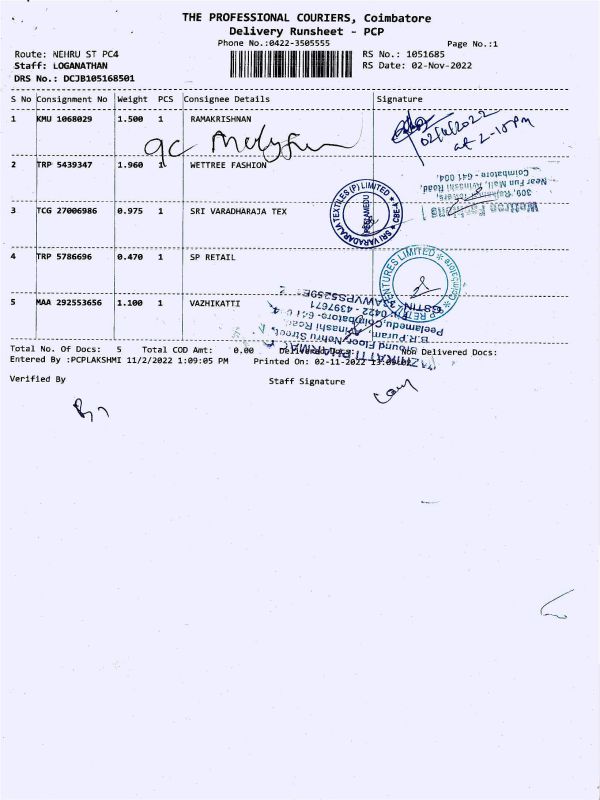 THE PROFESSIONAL COURIERS, Coimbatore
Delivery Runsheet - PCP
Phone No.:0422-3505555
Page No.:1
Route: NEHRU ST PC4
RS No.: 1051685
Staff: LOGANATHAN
RS Date: 02-Nov-2022
DRS No.: DCJB105168501
S No Consignment No Weight PCS Consignee Details Signature
1 KMU 1068029 1.500 1 RAMAKRISHNAN
02/11/2022
at 2-15pm
2 TRP 5439347 1.960 1 WETTREE FASHION
309,
Near Fun Mall, Avinashi Road,
Coimbatore - 641 004.
3 TCG 27006986 0.975 1 SRI VARADHARAJA TEX
SRI VARADARAJA TEXTILES (P) LIMITED
PEELAMEDU
CBE-4
4 TRP 5786696 0.470 1 SP RETAIL
SP RETAIL VENTURES LIMITED
Coimbatore
5 MAA 292553656 1.100 1 VAZHIKATTI
VAZHIKATTI PHARMA
Ground Floor, Nehru Street,
B.R.Puram, Avinashi Road,
Peelamedu, Coimbatore-641 004
0422 - 4397671
Total No. Of Docs: 5 Total COD Amt: 0.00 Delivered Docs: Non Delivered Docs:
Entered By :PCPLAKSHMI 11/2/2022 1:09:05 PM Printed On: 02-11-2022 13:09:02
Verified By
Staff Signature